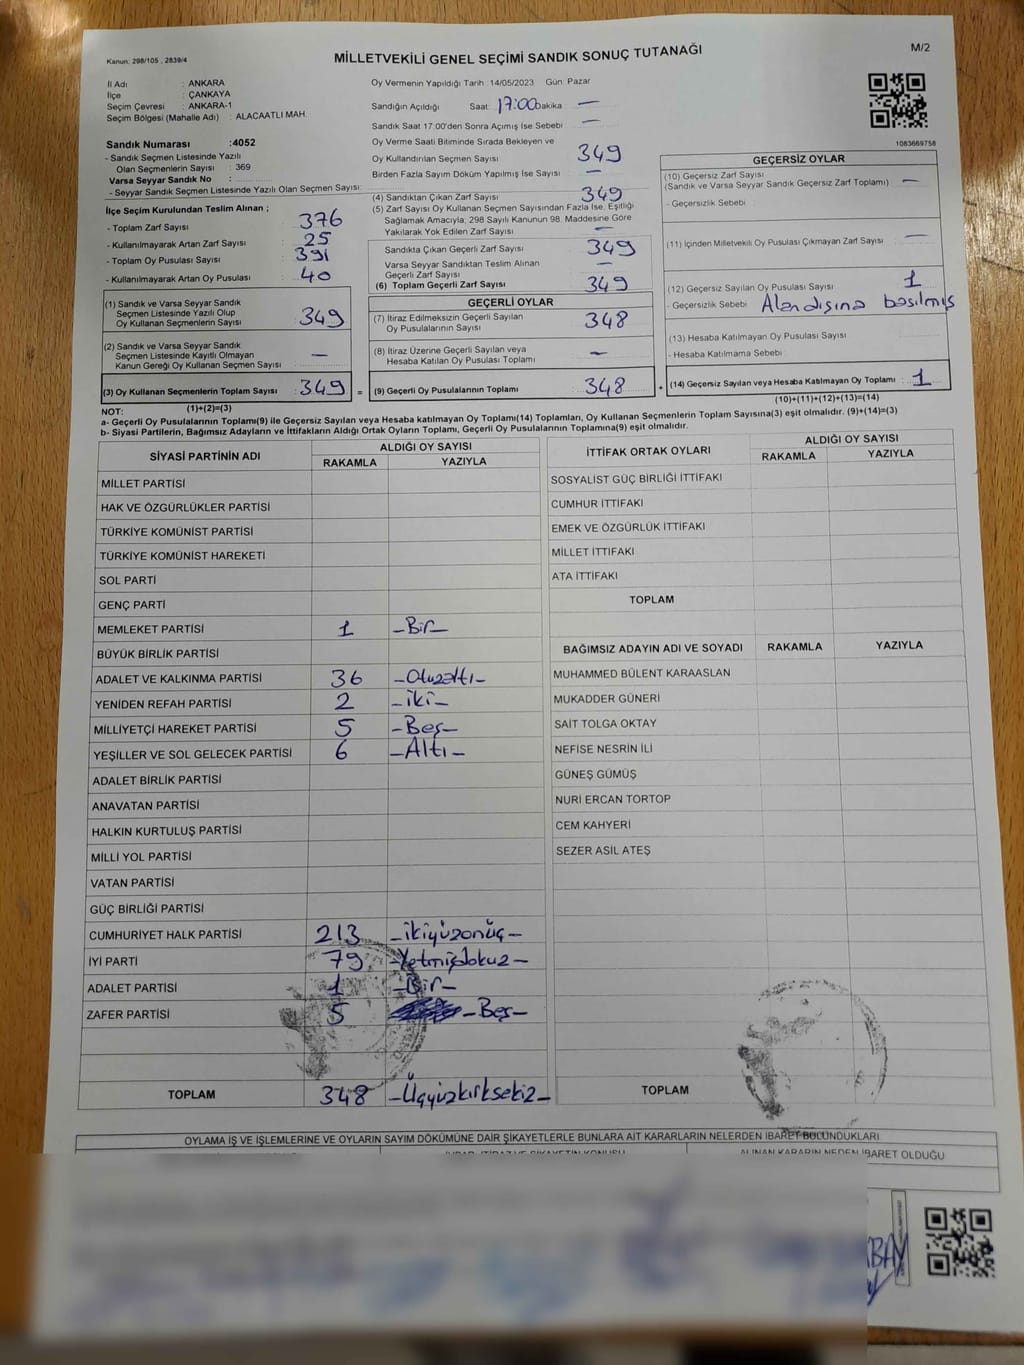 Kanun: 298/105 , 2839/4
MİLLETVEKİLİ GENEL SEÇİMİ SANDIK SONUÇ TUTANAĞI
M/2
İl Adı : ANKARA
İlçe : ÇANKAYA
Seçim Çevresi : ANKARA-1
Seçim Bölgesi (Mahalle Adı) : ALACAATLI MAH.
Sandık Numarası :4052
- Sandık Seçmen Listesinde Yazılı
Olan Seçmenlerin Sayısı : 369
Varsa Seyyar Sandık No :
- Seyyar Sandık Seçmen Listesinde Yazılı Olan Seçmen Sayısı:
İlçe Seçim Kurulundan Teslim Alınan ;
- Toplam Zarf Sayısı : 376
- Kullanılmayarak Artan Zarf Sayısı : 25
- Toplam Oy Pusulası Sayısı : 391
- Kullanılmayarak Artan Oy Pusulası : 40
(1) Sandık ve Varsa Seyyar Sandık
Seçmen Listesinde Yazılı Olup
Oy Kullanan Seçmenlerin Sayısı : 349
(2) Sandık ve Varsa Seyyar Sandık
Seçmen Listesinde Kayıtlı Olmayan
Kanun Gereği Oy Kullanan Seçmen Sayısı : —
(3) Oy Kullanan Seçmenlerin Toplam Sayısı : 349 =
(1)+(2)=(3)
Oy Vermenin Yapıldığı Tarih : 14/05/2023 Gün: Pazar
Sandığın Açıldığı Saat: 17:00 Dakika : —
Sandık Saat 17.00'den Sonra Açılmış İse Sebebi : —
Oy Verme Saati Bitiminde Sırada Bekleyen ve
Oy Kullandırılan Seçmen Sayısı : 349
Birden Fazla Sayım Döküm Yapılmış İse Sayısı : —
(4) Sandıktan Çıkan Zarf Sayısı : 349
(5) Zarf Sayısı Oy Kullanan Seçmen Sayısından Fazla İse, Eşitliği
Sağlamak Amacıyla; 298 Sayılı Kanunun 98. Maddesine Göre
Yakılarak Yok Edilen Zarf Sayısı : —
Sandıkta Çıkan Geçerli Zarf Sayısı : 349
Varsa Seyyar Sandıktan Teslim Alınan
Geçerli Zarf Sayısı : —
(6) Toplam Geçerli Zarf Sayısı : 349
GEÇERLİ OYLAR
(7) İtiraz Edilmeksizin Geçerli Sayılan
Oy Pusulalarının Sayısı : 348
(8) İtiraz Üzerine Geçerli Sayılan veya
Hesaba Katılan Oy Pusulası Toplamı : —
(9) Geçerli Oy Pusulalarının Toplamı : 348 +
1083669758
GEÇERSİZ OYLAR
(10) Geçersiz Zarf Sayısı
(Sandık ve Varsa Seyyar Sandık Geçersiz Zarf Toplamı) : —
- Geçersizlik Sebebi :
(11) İçinden Milletvekili Oy Pusulası Çıkmayan Zarf Sayısı : —
(12) Geçersiz Sayılan Oy Pusulası Sayısı : 1
- Geçersizlik Sebebi : Alan dışına basılmış
(13) Hesaba Katılmayan Oy Pusulası Sayısı :
- Hesaba Katılmama Sebebi :
(14) Geçersiz Sayılan veya Hesaba Katılmayan Oy Toplamı : 1
(10)+(11)+(12)+(13)=(14)
NOT:
a- Geçerli Oy Pusulalarının Toplamı(9) ile Geçersiz Sayılan veya Hesaba katılmayan Oy Toplamı(14) Toplamları, Oy Kullanan Seçmenlerin Toplam Sayısına(3) eşit olmalıdır. (9)+(14)=(3)
b- Siyasi Partilerin, Bağımsız Adayların ve İttifakların Aldığı Ortak Oyların Toplamı, Geçerli Oy Pusulalarının Toplamına(9) eşit olmalıdır.
SİYASİ PARTİNİN ADI ALDIĞI OY SAYISI
RAKAMLA YAZIYLA
MİLLET PARTİSİ
HAK VE ÖZGÜRLÜKLER PARTİSİ
TÜRKİYE KOMÜNİST PARTİSİ
TÜRKİYE KOMÜNİST HAREKETİ
SOL PARTİ
GENÇ PARTİ
MEMLEKET PARTİSİ 1 -Bir-
BÜYÜK BİRLİK PARTİSİ
ADALET VE KALKINMA PARTİSİ 36 -Otuzaltı-
YENİDEN REFAH PARTİSİ 2 -iki-
MİLLİYETÇİ HAREKET PARTİSİ 5 -Beş-
YEŞİLLER VE SOL GELECEK PARTİSİ 6 -Altı-
ADALET BİRLİK PARTİSİ
ANAVATAN PARTİSİ
HALKIN KURTULUŞ PARTİSİ
MİLLİ YOL PARTİSİ
VATAN PARTİSİ
GÜÇ BİRLİĞİ PARTİSİ
CUMHURİYET HALK PARTİSİ 213 -ikiyüzonüç-
İYİ PARTİ 79 -Yetmişdokuz-
ADALET PARTİSİ 1 -Bir-
ZAFER PARTİSİ 5 -Beş-
TOPLAM 348 -Üçyüzkırksekiz-
İTTİFAK ORTAK OYLARI ALDIĞI OY SAYISI
RAKAMLA YAZIYLA
SOSYALİST GÜÇ BİRLİĞİ İTTİFAKI
CUMHUR İTTİFAKI
EMEK VE ÖZGÜRLÜK İTTİFAKI
MİLLET İTTİFAKI
ATA İTTİFAKI
TOPLAM
BAĞIMSIZ ADAYIN ADI VE SOYADI RAKAMLA YAZIYLA
MUHAMMED BÜLENT KARAASLAN
MUKADDER GÜNERİ
SAİT TOLGA OKTAY
NEFİSE NESRİN İLİ
GÜNEŞ GÜMÜŞ
NURİ ERCAN TORTOP
CEM KAHYERİ
SEZER ASIL ATEŞ
TOPLAM
OYLAMA İŞ VE İŞLEMLERİNE VE OYLARIN SAYIM DÖKÜMÜNE DAİR ŞİKAYETLERLE BUNLARA AİT KARARLARIN NELERDEN İBARET BULUNDUKLARI
ALINAN KARARIN NEDEN İBARET OLDUĞU